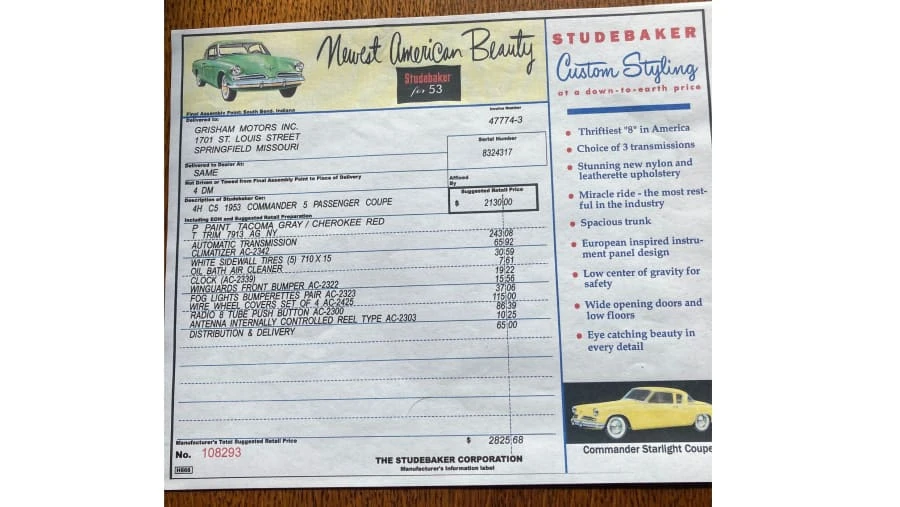 Newest American Beauty
Studebaker
for 53
Final Assembly Point: South Bend, Indiana
Delivered to:
GRISHAM MOTORS INC.
1701 ST. LOUIS STREET
SPRINGFIELD MISSOURI
Invoice Number
47774-3
Serial Number
8324317
Delivered to Dealer At:
SAME
Not Driven or Towed from Final Assembly Point to Place of Delivery
4 DM
Affixed
By
Description of Studebaker Car:
4H C5 1953 COMMANDER 5 PASSENGER COUPE
Suggested Retail Price
$ 2130 00
Including EOH and Suggested Retail Preparation
P PAINT TACOMA GRAY / CHEROKEE RED
T TRIM 7913 AG NY
AUTOMATIC TRANSMISSION 243 08
CLIMATIZER AC-2342 65 92
WHITE SIDEWALL TIRES (5) 710 X 15 30 59
OIL BATH AIR CLEANER 7 61
CLOCK (AC-2339) 19 22
WINGUARDS FRONT BUMPER AC-2322 15 56
FOG LIGHTS BUMPERETTES PAIR AC-2323 37 06
WIRE WHEEL COVERS SET OF 4 AC-2425 115 00
RADIO 8 TUBE PUSH BUTTON AC-2300 86 39
ANTENNA INTERNALLY CONTROLLED REEL TYPE AC-2303 10 25
DISTRIBUTION & DELIVERY 65 00
Manufacturer's Total Suggested Retail Price $ 2825 68
No. 108293
THE STUDEBAKER CORPORATION
Manufacturer's Information label
STUDEBAKER
Custom Styling
at a down-to-earth price
Thriftiest "8" in America
Choice of 3 transmissions
Stunning new nylon and
leatherette upholstery
Miracle ride - the most rest-
ful in the industry
Spacious trunk
European inspired instru-
ment panel design
Low center of gravity for
safety
Wide opening doors and
low floors
Eye catching beauty in
every detail
Commander Starlight Coupe